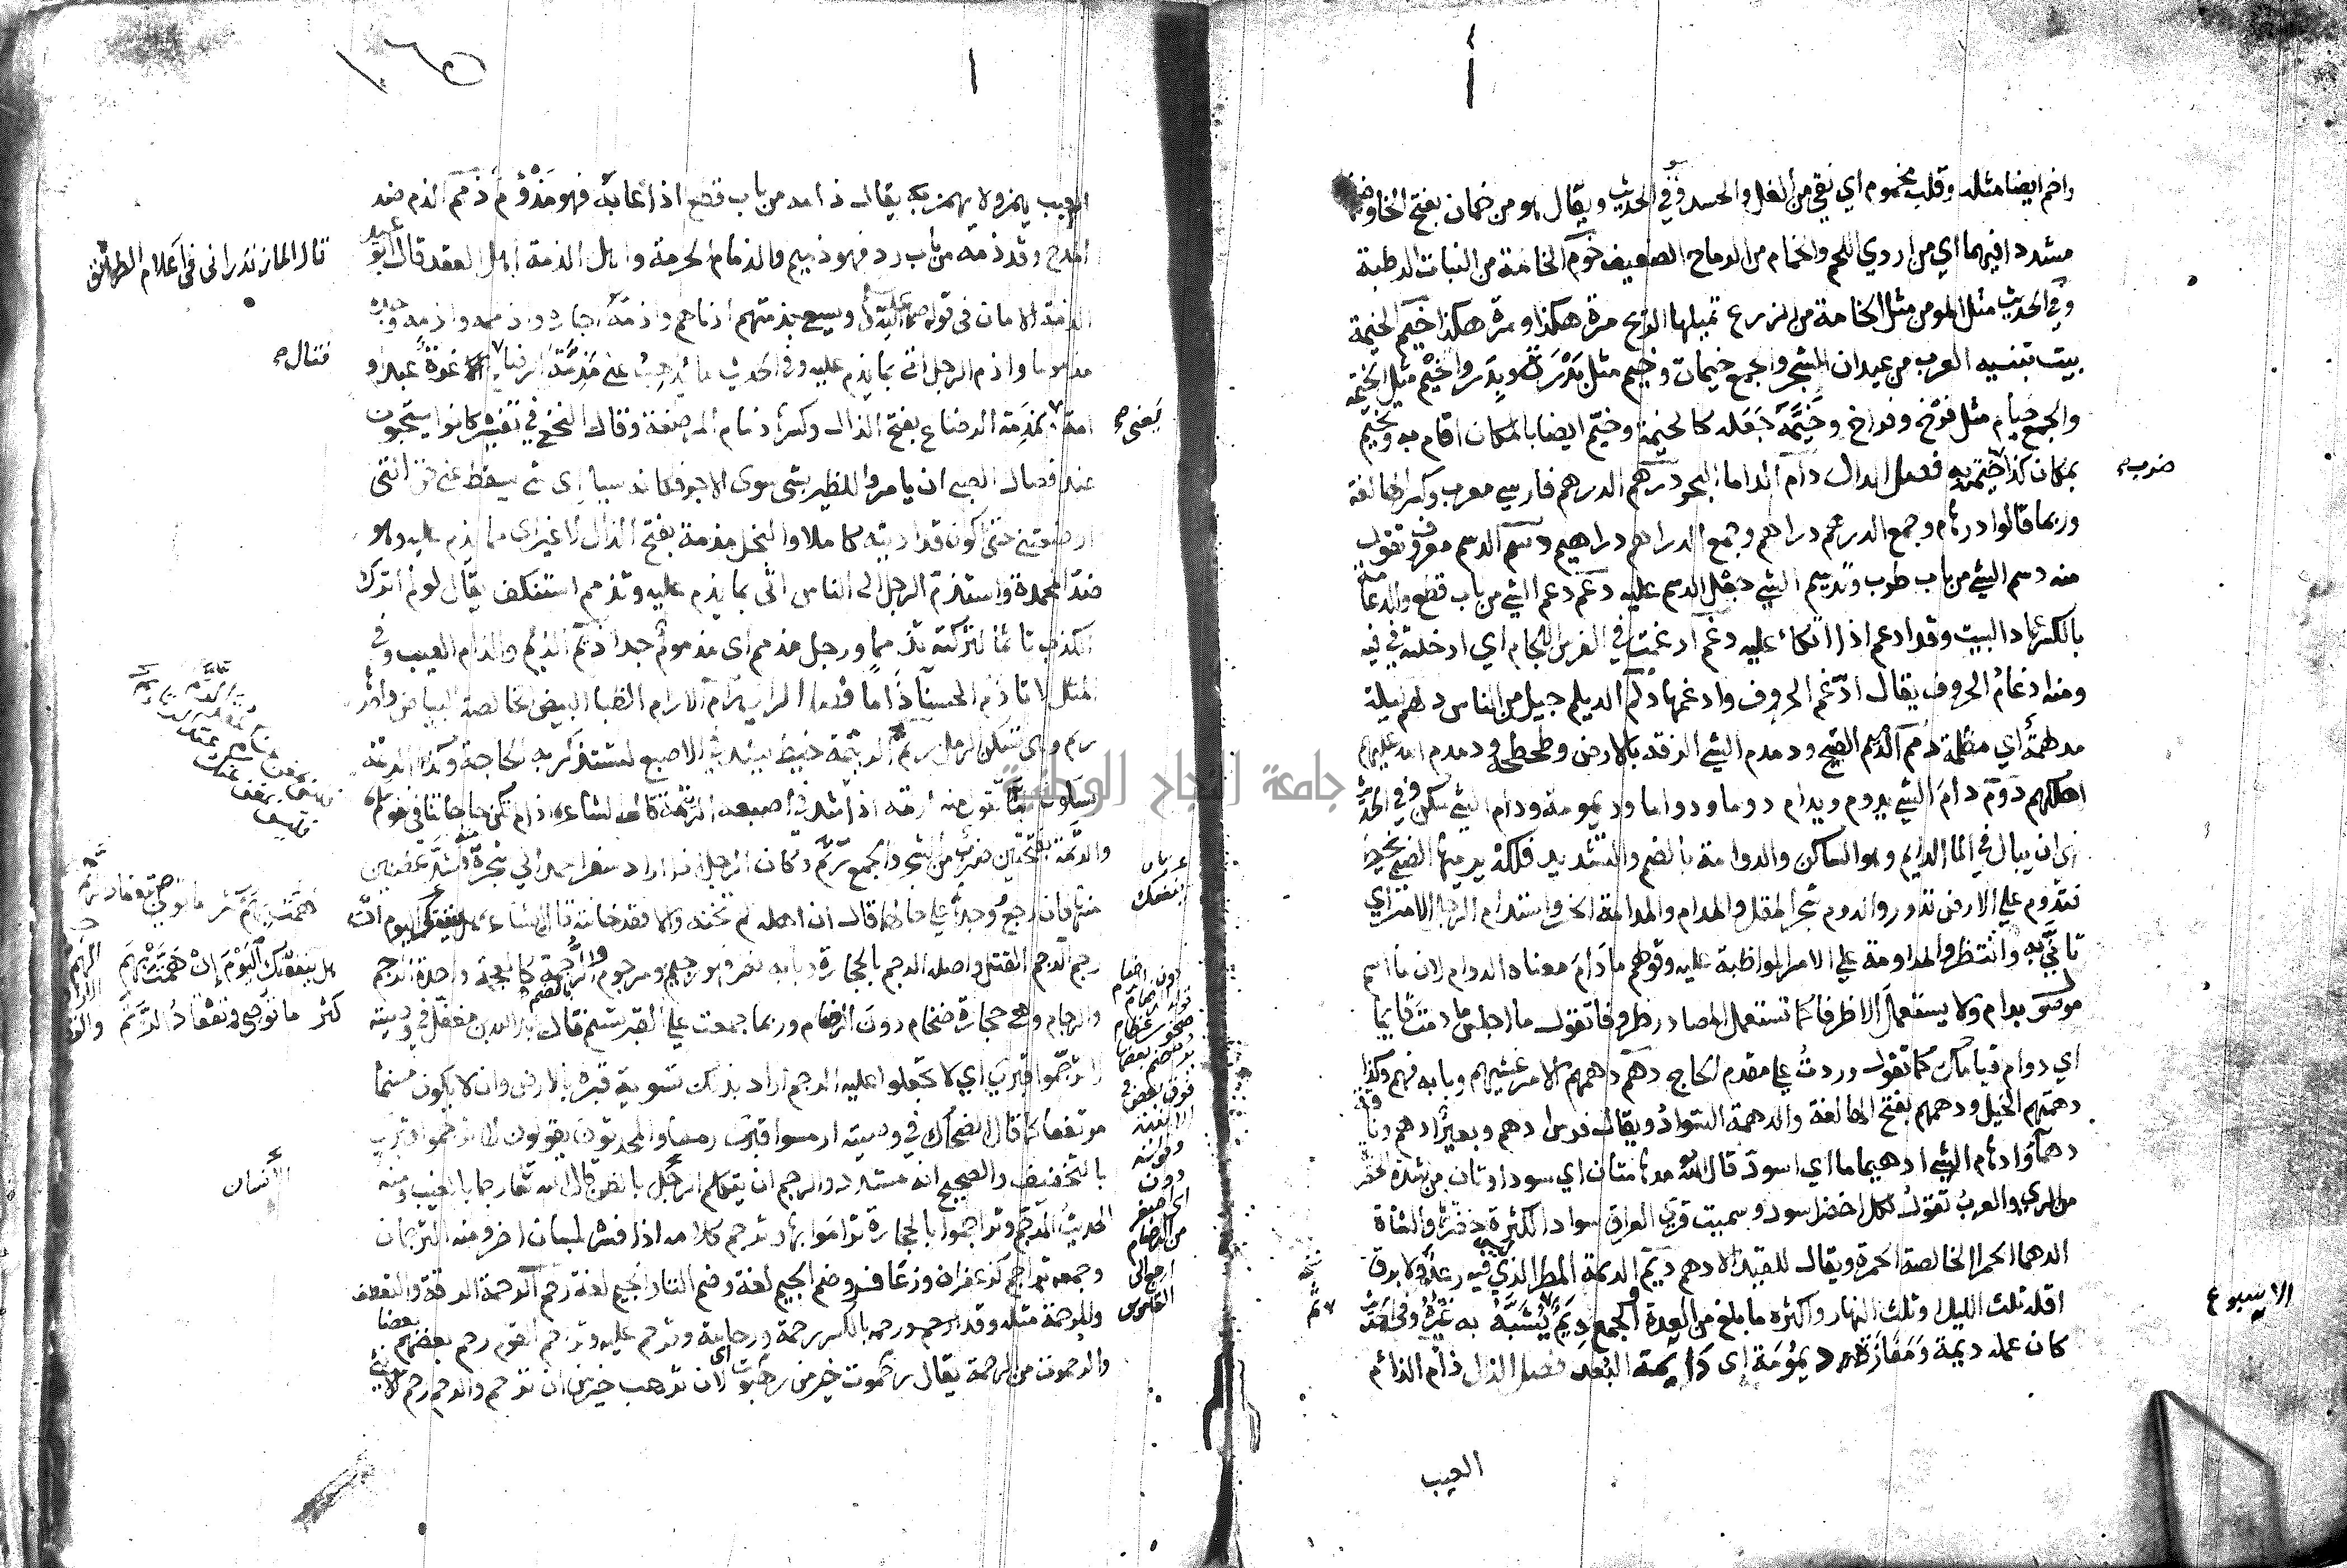 واخم ايضا مثله وقلب مخموم اي نقي من الغل والحسد وفي الحديث ويقال هو من خمان بفتح الخا وضمها
مشددا فيهما اي من اردي اللحم والخمام من الرماح الضعيف خوم الخامة من النبات الرطبة
وفي الحديث مثل المومن مثل الخامة من الزرع تميلها الريح مرة هكذا ومرة هكذا خيم الخيمة
بيت تبنيه العرب من عيدان الشجر والجمع خيمات وخيم مثل بدرة وبدر والخيم مثل الخيمة
والجمع خيام مثل فرخ وفراخ وخيمه جعله كالخيمة وخيم ايضا بالمكان اقام به وتخيم
بمكان كذا خيمته به فصل الدال دأم الداما البحر درهم الدرهم فارسي معرب وكسر الها لغة
وربما قالوا درهام وجمع الدرهم دراهم وجمع الدرهام دراهيم دسم الدسم معروف تقول
منه دسم الشي من باب طرب وتدسيم الشي جعل الدسم عليه دعم دعم الشي من باب قطع والدعامة
بالكسر عماد البيت وقد ادعم اذا اتكا عليه دغم ادغمت في الفرس اللجام اي ادخلته في فيه
ومنه ادغام الحروف يقال ادغم الحروف وادغمها دلم الديلم جيل من الناس دلهم ليلة
مدلهمة اي مظلمة دمم الدميم القبيح ودمدم الشي الزقه بالارض وطحطحه ودمدم الله عليهم
اهلكهم دوم دام الشي يدوم ويدام دوما ودواما وديمومة ودام الشي سكن وفي الحديث
نهى ان يبال في الما الدايم وهو الساكن والدوامة بالضم والتشديد فلكة يرميها الصبي بخيط
فتدوم علي الارض تدور والدوم شجر المقل والمدام والمدامة الخمر واستدام الرجل الامر اي
تاني به وانتظر والمداومة علي الامر المواظبة عليه وقولهم ما دام معناه الدوام لان ما اسم
موصول بدام ولا يستعمل الا ظرفا كما تستعمل المصادر ظروفا تقول ما اجلس ما دمت قايما
اي دوام قيامك كما تقول وردت علي مقدم الحاج دهم دهمهم الامر غشيهم وبابه فهم وكذا
دهمتهم الخيل ودهمهم بفتح الها لغة والدهمة السواد ويقال فرس ادهم وبعير ادهم وناقة
دهما وادهام الشي ادهيماما اي اسود قال الله مدهامتان اي سوداوتان من شدة الخضرة
من الري والعرب تقول لكل اخضر اسود وسميت قري العراق سوادا لكثرة خضرتها والشاة
الدهما الحمرا الخالصة الحمرة ويقال للقيد الادهم ديم الديمة المطر الذي ليس فيه رعد ولا برق
اقله ثلث الليل وثلث النهار واكثره ما بلغ من العدة والجمع ديم ويشبه به غيره وفي الحديث
كان عمله ديمة ومفازة ديمومة اي دايمة البعد فصل الذال ذأم الذائم
ضرب
الاسبوع
العيب
العيب يهمز ولا يهمز يقال ذامه من باب قطع اذا عابه فهو مذؤم ذمم الذم ضد
المدح وقد ذمه من باب رد فهو ذميم والذمام الحرمة واهل الذمة اهل العقد قال ابو عبيد
الذمة الامان في قوله ويسعى بذمتهم ادناهم واذمه اجاره واذمه وجده
مذموما واذم الرجل اتى بما يذم عليه وفي الحديث ما يذهب عني مذمة الرضاع فقال غرة عبد او
امة يعني بمذمة الرضاع بفتح الذال وكسرها ذمام المرضعة وقال النخعي في تفسيره كانوا يستحبون
عند فصال الصبي ان يامروا للظير بشي سوى الاجر فكانه سال اي شي يسقط عني حق التي
ارضعتني حتى اكون قد اديته كاملا والبخل مذمة بفتح الذال لا غير اي مما يذم عليه وهو
ضد المحمدة واستذم الرجل الى الناس اتى بما يذم عليه وتذمم استنكف يقال لو لم اترك
الكذب تاثما لتركته تذمما ورجل مذمم اي مذموم جدا ذيم الذيم والذام العيب وفي
المثل لا تعدم الحسنا ذاما فصل الرا رام الارام الظبا البيض الخالصة البياض واحدها
ريم وهي تسكن الرمل رتم الرتيمة خيط يشد في الاصبع لتستذكر به الحاجة وكذا الرتمة
والرتمة بفتحتين ضرب من الشجر والجمع رتم وكان الرجل اذا اراد سفرا عمد الي شجرة فشد غصنين
منها فان رجع وجدهما علي حالهما قال ان اهله لم تخنه والا فقد خانته قال الشاعر هل ينفعنك اليوم ان
رجم الرجم القتل واصله الرجم بالحجارة وبابه نصر فهو رجيم ومرجوم والرجمة كالعجمة واحدة الرجم
والرجام وهي حجارة ضخام دون الرضام وربما جمعت علي القبر ليسنم قال عبد الله بن مغفل في وصيته
لا ترجموا قبري اي لا تجعلوا عليه الرجم اراد بذلك تسوية قبره بالارض وان لا يكون مسنما
مرتفعا كما قال الضحاك في وصيته ارمسوا قبري رمسا والمحدثون يقولون لا ترجموا قبري
بالتخفيف والصحيح انه مشدد والرجم ان يتكلم الرجل بالظن قال الله تعالى رجما بالغيب ومنه
الحديث المرجم وتراجموا بالحجارة تراموا بها وترجم كلامه اذا فسره بلسان اخر ومنه الترجمان
وجمعه تراجم كزعفران وزعافر وضم الجيم لغة وضم التا والجيم لغة رحم الرحمة الرقة والتعطف
والمرحمة مثله وقد رحمه بالكسر رحمة ومرحمة وترحم عليه وتراحم القوم رحم بعضهم بعضا
والرحموت من الرحمة يقال رهبوت خير من رحموت اي لان ترهب خير من ان ترحم
قال المازندراني في اعلام الطرائق
فقال
يعني
هل ينفعنك اليوم ان همت بهم
كثر ما توصي وتعقاد الرتم
دون الرضام
صخور عظام
يرضم بعضها
فوق بعض في
الابنية
دون
اي اصغر
من الرضام
ارجع الى
القاموس
الانسان
جامعة النجاح الوطنية